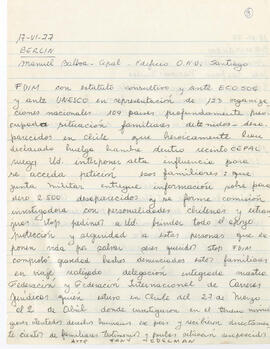 17-VI-77
BERLIN
Manuel Balboa - Cepal - Edificio O.N.U. Santiago
FDIM con estatuto consultivo y ante ECOSOC
y ante UNESCO en representación de 123 organiza
ciones nacionales 109 países profundamente preo
cupada situación familiares detenidos desa
parecidos en Chile que heroicamente han
declarado huelga hambre dentro recinto CEPAL
ruega Ud. interponer alta influencia para
se acceda petición familiares a que
junta militar entregue información sobre para
dero 2.500 desaparecidos y se forme comisión
investigadora con personalidades chilenas y extran
jeras stop pedimos a Ud. brinder todo el apoyo
protección y seguridad a estas personas que ex
ponen vida por salvar seres queridos stop FDIM
comprobó gravedad hechos denunciados estos familiares
en viaje realizado delegación integrada nuestra
Federación y Federación Internacional de Carreras
Jurídicas quien estuvo en Chile del 27 de Marzo
al 2 de Abril donde investigaron en el terreno
derechos humanos ex país y recibieron directamen
te cientos de familiares testimonios y
FANY EDELMAN